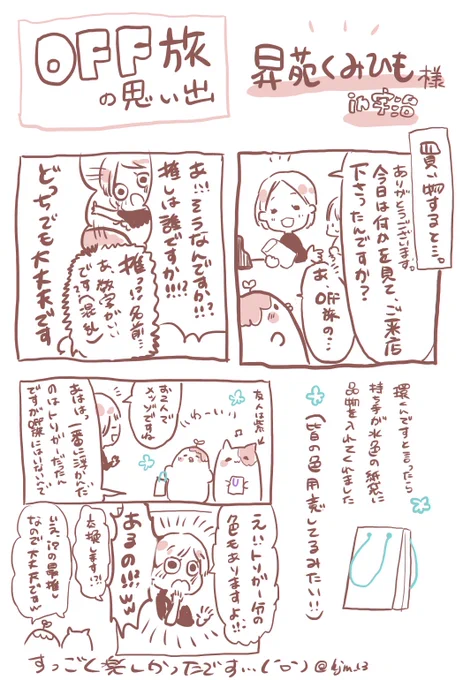 OFF旅
の思い出
昇苑くみひも様
in宇治
買い物すると…。
ありがとうございます。
今日は何かを見て、ご来店
下さったんですか?
あ、OFF旅の…
あ!!そうなんですか!!?
推しは誰ですか!!!?
推っ!?名前…
あ、数字がいい
です?(混乱)
どっちでも大丈夫です
環くんですと言ったら
持ち手が水色の紙袋に
品物を入れてくれました
(皆の色用意してるみたい!!)
友人は紫♪
わーいっ
お二人で
メッゾですね
あはは、一番に浮かんだ
のはトリガーだったん
ですがOFF旅にはいないで
えっ!トリガー分の
色もありますよ!!
あるの!!?ww
交換します!?
いえ、i7の最推
なので大丈夫ですww
すっごく楽しかったです…(´ロ`)@kjm_13